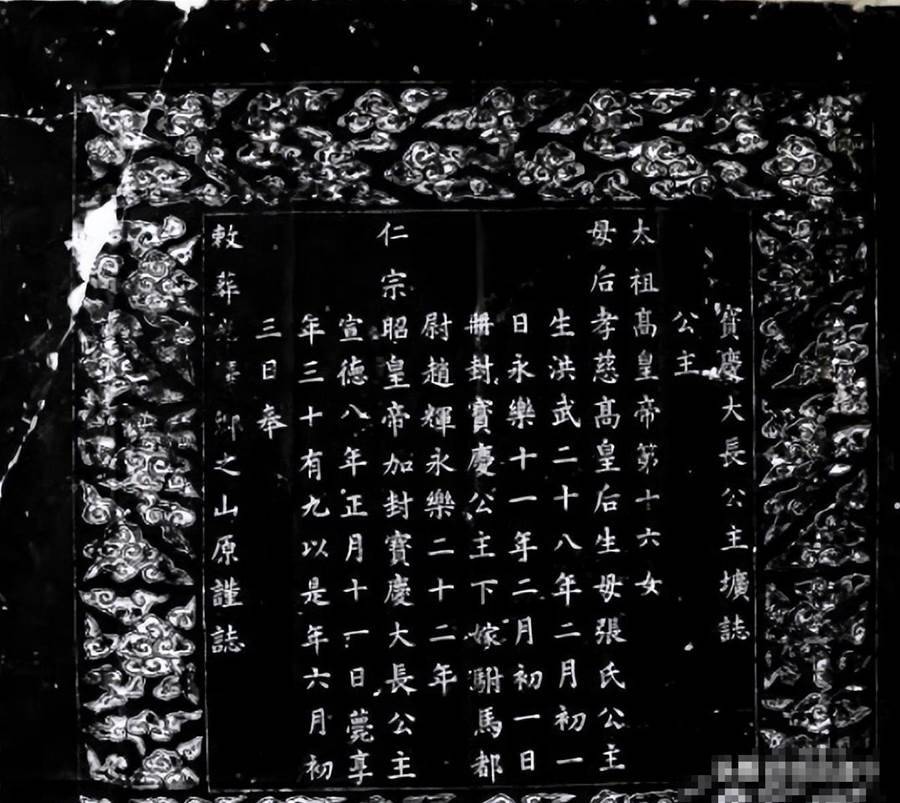 寶慶大長公主壙誌
公主
太祖髙皇帝第十六女
母后孝慈髙皇后生母張氏公主
生洪武二十八年二月初一
日永樂十一年二月初一日
冊封寶慶公主下嫁駙馬都
尉趙輝永樂二十二年
仁宗昭皇帝加封寶慶大長公主
宣德八年正月十一日薨享
年三十有九以是年六月初
三日奉
敕葬鄉之山原謹誌